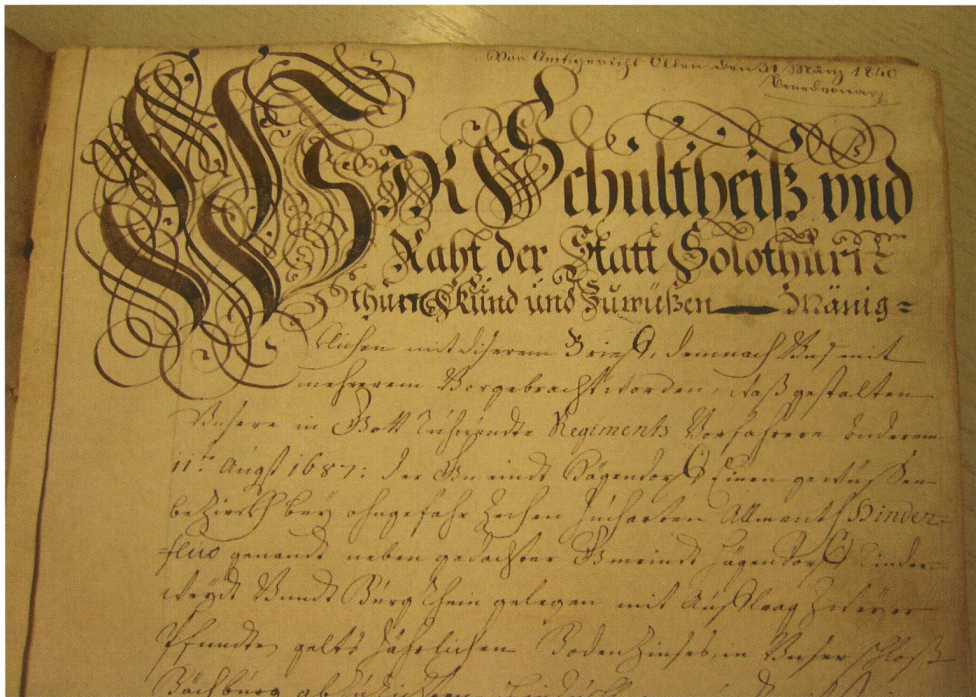 Vor Amtsgericht Olten den 31 März 1840
WIR Schultheiß vnd
Raht der Statt Solothurn
thurn Kund und Zuwüßen Mänig=
klichen mit diserem Brieff, demnach Unß mit
mehrerem Vorgebracht worden, waß gestalten
Unsere in Gott Ruhwendte Regiments Vorfahren
11ten Augst 1687: der Gmeindt Hägendorff Einen gewüssen
bezirckh bey ohngefahr Zechen Jucharten Allmenth Hinden=
flüo genandt neben gedachter Gmeindt Hägendorff Rinder=
weydt Vundt Bürg Rhein gelegen mit Aufflaag Zweyer
Pfundten gelts Jährlichen Bodenzinses, in Unser Schloß
Bächburg